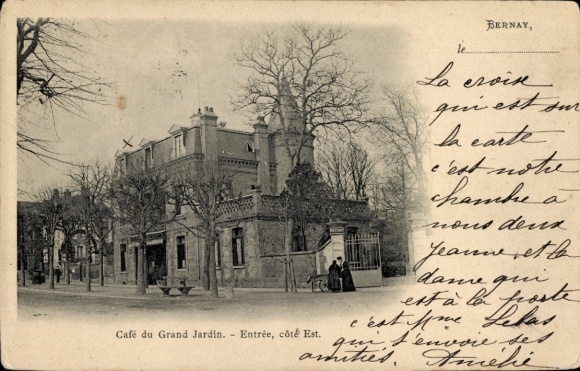 BERNAY,
le
La croise
qui est sur
la carte
c'est notre
chambre a
nous deux
Jeanne, et la
dame qui
est à la porte
c'est Mme Lebas
qui s'envoie ses
amitiés, Amélie
Café du Grand Jardin. - Entrée, côté Est.